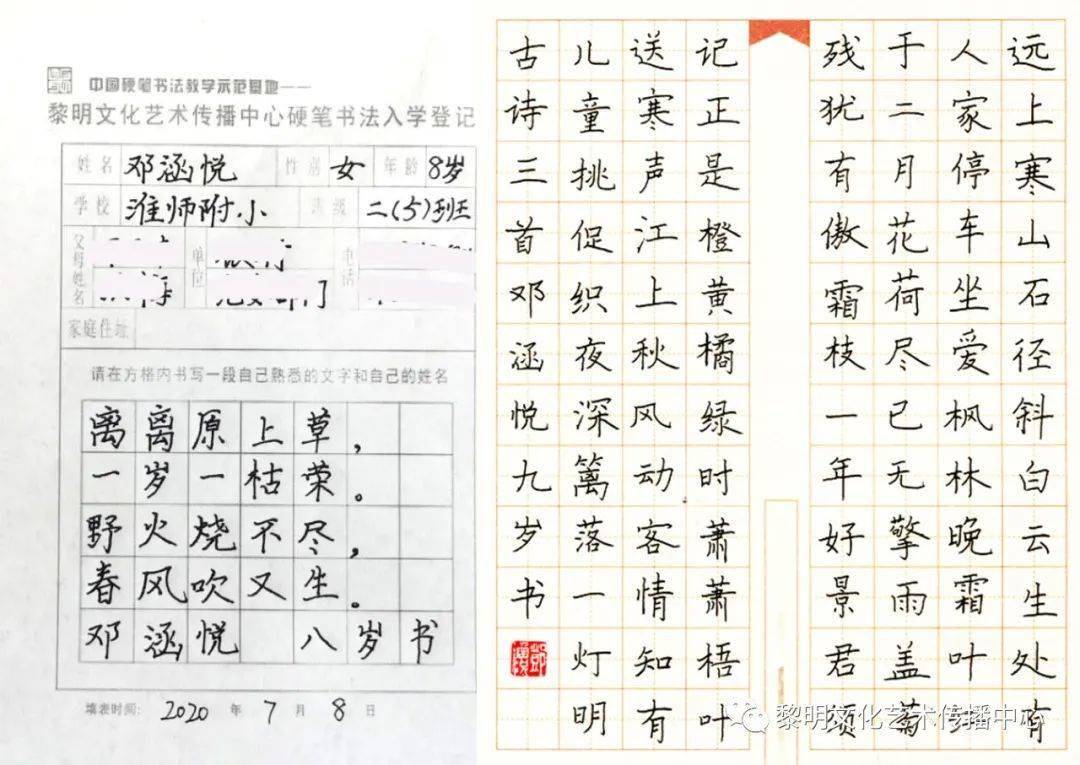 中国硬笔书法教学示范基地——
黎明文化艺术传播中心硬笔书法入学登记
姓名 邓涵悦 性别 女 年龄 8岁
学校 淮师附小 班级 二(5)班
父母姓名 单位 电话
家庭住址
请在方格内书写一段自己熟悉的文字和自己的姓名
离离原上草，
一岁一枯荣。
野火烧不尽，
春风吹又生。
邓涵悦 八岁书
填表时间: 2020 年 7 月 8 日
远上寒山石径斜白云生处有
人家停车坐爱枫林晚霜叶红
于二月花荷尽已无擎雨盖菊
残犹有傲霜枝一年好景君须
记正是橙黄橘绿时萧萧梧叶
送寒声江上秋风动客情知有
儿童挑促织夜深篱落一灯明
古诗三首邓涵悦九岁书
黎明文化艺术传播中心